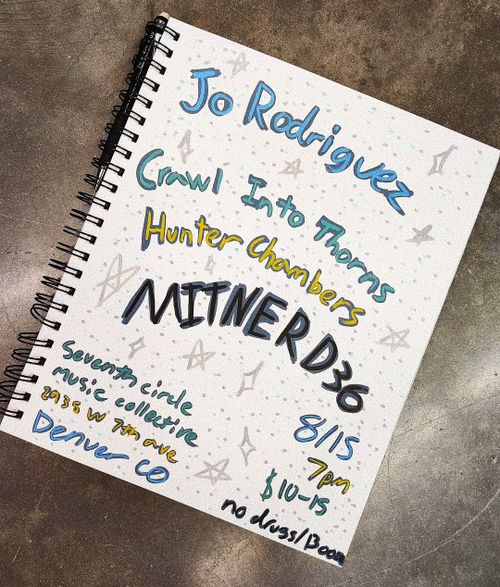 Jo Rodriguez
Crawl Into Thorns
Hunter Chambers
MITNERD36
Seventh circle
music collective
2935 W 7th ave
Denver CO
8/15
7pm
$10-15
no drugs/Booze